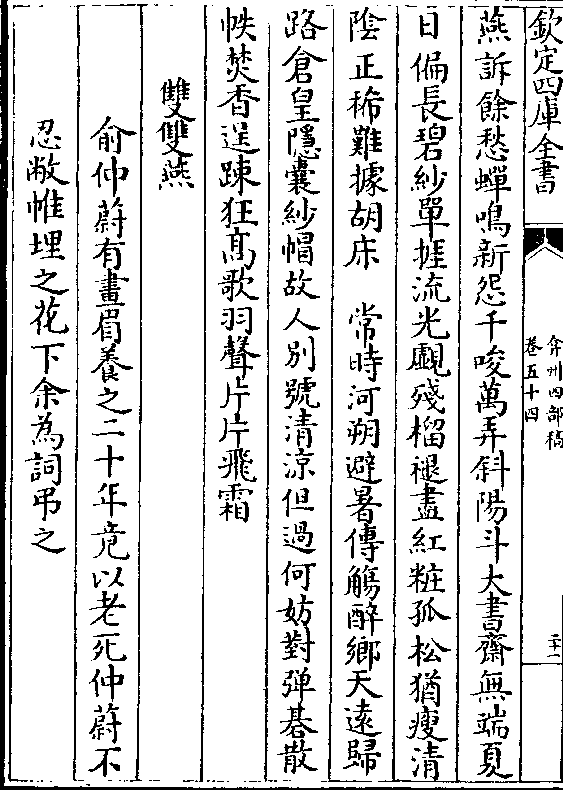 欽定四庫全書
弇州四部稿
卷五十四
二十一
燕訴餘愁蟬鳴新怨千唆萬弄斜陽斗大書齋無端夏
日偏長碧紗單捱流光覷殘榴褪盡紅粧孤松猶瘦清
陰正稀難據胡床　常時河朔避暑傳觴醉鄉天遠歸
路倉皇隱囊紗帽故人別號清涼但過何妨對弹碁散
帙焚香逞踈狂髙歌羽聲片片飛霜
雙雙燕
俞仲蔚有畫眉養之二十年竟以老死仲蔚不
忍敝帷埋之花下余為詞弔之